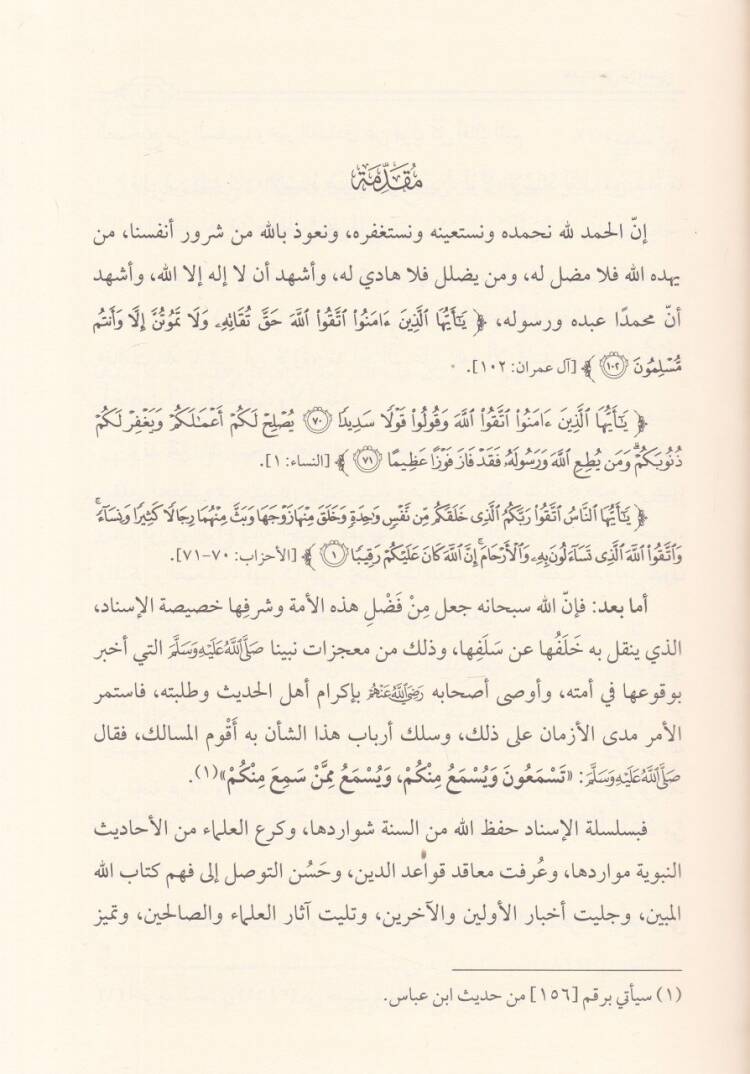 مُقَدِّمَة
إنّ الحمد لله نحمده ونستعينه ونستغفره، ونعوذ بالله من شرور أنفسنا، من
يهده الله فلا مضل له، ومن يضلل فلا هادي له، وأشهد أن لا إله إلا الله، وأشهد
أنّ محمدًا عبده ورسوله، ﴿ يَٰٓأَيُّهَا ٱلَّذِينَ ءَامَنُوا۟ ٱتَّقُوا۟ ٱللَّهَ حَقَّ تُقَاتِهِۦ وَلَا تَمُوتُنَّ إِلَّا وَأَنتُم
مُّسْلِمُونَ ١٠٢ ﴾ [آل عمران: ١٠٢].
﴿ يَٰٓأَيُّهَا ٱلَّذِينَ ءَامَنُوا۟ ٱتَّقُوا۟ ٱللَّهَ وَقُولُوا۟ قَوْلًا سَدِيدًا ٧٠ يُصْلِحْ لَكُمْ أَعْمَٰلَكُمْ وَيَغْفِرْ لَكُمْ
ذُنُوبَكُمْ ۗ وَمَن يُطِعِ ٱللَّهَ وَرَسُولَهُۥ فَقَدْ فَازَ فَوْزًا عَظِيمًا ٧١ ﴾ [النساء: ١].
﴿ يَٰٓأَيُّهَا ٱلنَّاسُ ٱتَّقُوا۟ رَبَّكُمُ ٱلَّذِى خَلَقَكُم مِّن نَّفْسٍ وَٰحِدَةٍ وَخَلَقَ مِنْهَا زَوْجَهَا وَبَثَّ مِنْهُمَا رِجَالًا كَثِيرًا وَنِسَآءً ۚ
وَٱتَّقُوا۟ ٱللَّهَ ٱلَّذِى تَسَآءَلُونَ بِهِۦ وَٱلْأَرْحَامَ ۚ إِنَّ ٱللَّهَ كَانَ عَلَيْكُمْ رَقِيبًا ١ ﴾ [الأحزاب: ٧٠-٧١].
أما بعد: فإنّ الله سبحانه جعل مِنْ فَضْلِ هذه الأمة وشرفِها خصيصة الإسناد،
الذي ينقل به خَلَفُها عن سَلَفِها، وذلك من معجزات نبينا صَلَّى اللَّهُ عَلَيْهِ وَسَلَّمَ التي أخبر
بوقوعها في أمته، وأوصى أصحابه رَضِيَ اللَّهُ عَنْهُمْ بإكرام أهل الحديث وطلبته، فاستمر
الأمر مدى الأزمان على ذلك، وسلك أرباب هذا الشأن به أَقْوم المسالك، فقال
صَلَّى اللَّهُ عَلَيْهِ وَسَلَّمَ: «تَسْمَعُونَ وَيُسْمَعُ مِنْكُمْ، وَيُسْمَعُ مِمَّنْ سَمِعَ مِنْكُمْ»(١).
فبسلسلة الإسناد حفظ الله من السنة شواردها، وكرع العلماء من الأحاديث
النبوية مواردها، وعُرفت معاقد قواعد الدين، وحَسُن التوصل إلى فهم كتاب الله
المبين، وجليت أخبار الأولين والآخرين، وتليت آثار العلماء والصالحين، وتميز
(١) سيأتي برقم [١٥٦] من حديث ابن عباس.